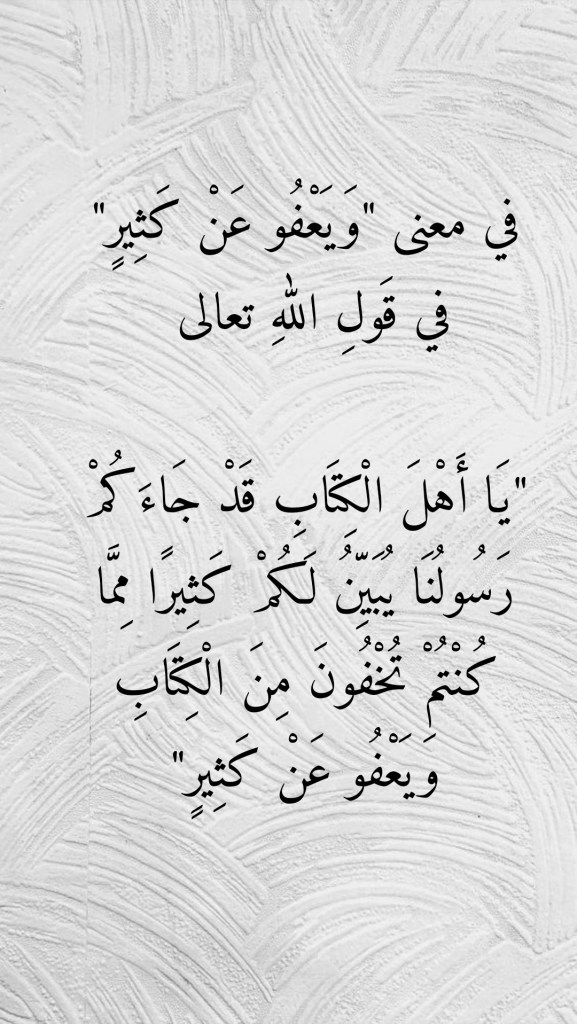 في معنى "وَيَعْفُو عَنْ كَثِيرٍ"
في قَولِ اللهِ تعالى
"يَا أَهْلَ الْكِتَابِ قَدْ جَاءَكُمْ
رَسُولُنَا يُبَيِّنُ لَكُمْ كَثِيرًا مِمَّا
كُنْتُمْ تُخْفُونَ مِنَ الْكِتَابِ
وَيَعْفُو عَنْ كَثِيرٍ"